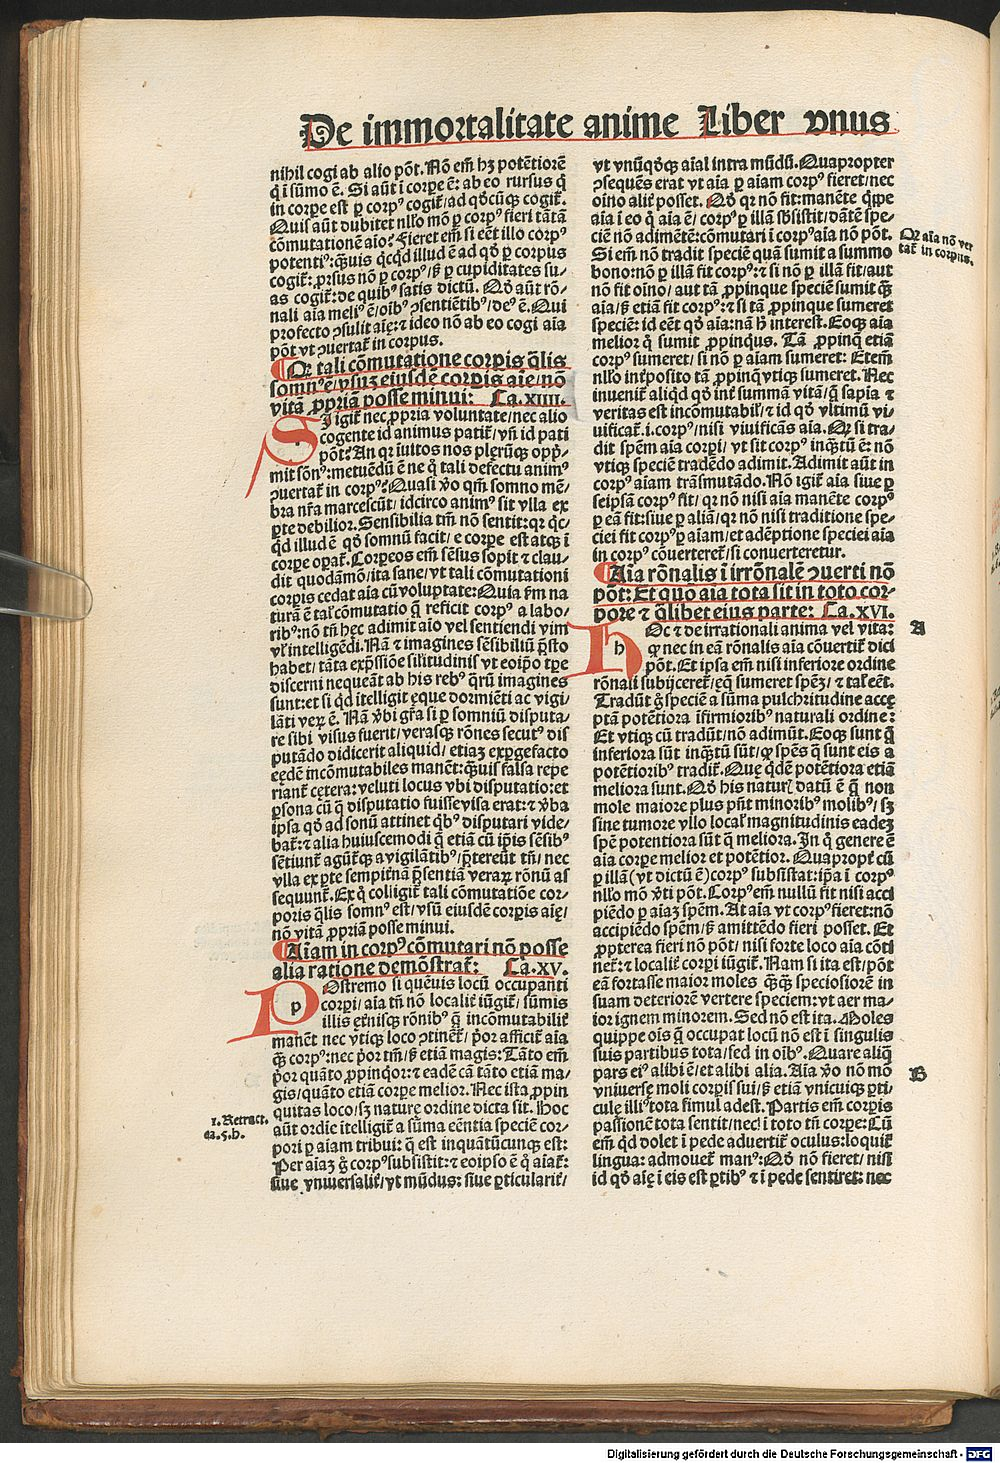 De immortalitate anime Liber vnus
nihil cogi ab alio pōt. Nō em̄ hȝ potētiorē
q̄ i sūmo ē. Si aūt i corpe ē: ab eo rursus q̄
in corpe est p corpꝰ cogit̄/ad qd̄cūqꝫ cogit̄.
Quis aūt dubitet nllo mō p corpꝰ fieri tātā
cōmutationē aīo? Fieret em̄ si eēt illo corpꝰ
potentiꝰ: q̄uis qcqd illud ē ad qd̄ p corpus
cogit̄: prsus nō p corpꝰ/ sȝ p cupiditates su/
as cogit̄: de quibꝰ satis dictū. Qd̄ aūt rō/
nali aīa meliꝰ ē/oībꝰ ꝯsentiētibꝰ/deꝰ ē. Qui
profecto ꝯsulit aīę: ⁊ ideo nō ab eo cogi aīa
pōt vt ꝯuertat̄ in corpus.
Qr tali cōmutatione corpis q̄lis
somnꝰ ē/vsuȝ eiusdē corpis aīe/nō
vitā ppriā posse minui: Ca.XIIII.
SI igit̄ nec ppria voluntate/nec alio
cogente id animus patit̄/vn̄ id pati
pōt? An qr iultos nos plerūqꝫ oppi/
mit sōnꝰ: metuēdū ē ne q̄ tali defectu animꝰ
ꝯuertat̄ in corpꝰ? Quasi v̄o qm̄ somno mē/
bra nr̄a marcescūt/ idcirco animꝰ sit vlla ex
pte debilior. Sensibilia tm̄ nō sentit: qr qc/
qd illud ē qd̄ somnū facit/ e corpe est atqꝫ i
corpe opat̄. Corpeos em̄ sēsus sopit ⁊ clau/
dit quodāmō/ita sane/vt tali cōmutationi
corpis cedat aīa cū voluptate: Quia s̄m na
turā ē tal̄ cōmutatio q̄ reficit corpꝰ a labo/
ribꝰ: nō tn̄ hec adimit aīo vel sentiendi vim
vl̄ intelligēdi. Nā ⁊ imagines sēsibiliū p̄sto
habet/ tāta exp̄ssiōe silitudinis vt eoipo tpe
discerni nequeāt ab his rebꝰ q̄rū imagines
sunt: et si qd itelligit ęque dormiēti ac vigi/
lāti veȝ ē. Nā v̄bi gr̄a si p somniū disputa/
re sibi visus fuerit/ verasqꝫ rōnes secutꝰ dis
putādo didicerit aliquid/ etiaȝ expgefacto
eędē incōmutabiles manēt: q̄uis falsa repe
riant̄ cętera: veluti locus vbi disputatio: et
psona cū q̄ disputatio fuisse visa erat: ⁊ v̄ba
ip̄sa qd̄ ad sonū attinet q̄bꝰ disputari vide/
bat̄: ⁊ alia huiuscemodi q̄ etiā cū ip̄is sēsibꝰ
sētiunt̄ agūt̄qꝫ a vigilātibꝰ/ p̄tereūt tn̄/ nec
vlla ex pte sempitnā p̄sentiā veraȝ rōnū as
sequunt̄. Ex q̄ coligit̄ tali cōmutatiōe cor/
poris q̄lis somnꝰ est/ vsū eiusdē corpis aīę/
nō vitā ppriā posse minui.
Aīam in corpꝰ cōmutari nō posse
alia ratione demōstrat̄: Ca.XV.
POstremo si quēuis locū occupanti
corpi/ aīa tn̄ nō localit̄ iūgit̄/ sūmis
illis et̄nisqꝫ rōnibꝰ q̄ incōmutabilit̄
manēt nec vtiqꝫ loco ꝯtinēt̄/ p̄or afficit̄ aīa
q̄ꝫ corpꝰ: nec p̄or tm̄/ sȝ etiā magis: Tāto em̄
p̄or quāto ppinqor: ⁊ eadē cā tāto etiā ma/
gis/quāto etiā corpe melior. Nec ista ppin
quitas loco/ sȝ naturę ordine dicta sit. Hoc
aūt ordie itelligit̄ a sūma eēntia speciē cor/
pori p aīam tribui: q̄ est inquātūcunqꝫ est:
Per aīaȝ g̊ corpꝰ subsistit: ⁊ eoipso ē q̄ aīat̄:
siue vniuersalit̄/ vt mūdus: siue pticularit̄/
1. Retract.
ca.5.b.
vt vnūqd̄qꝫ aīal intra mūdū. Quapropter
ꝯsequēs erat vt aīa p aīam corpꝰ fieret/nec
oīno alit̄ posset. Qd̄ qr nō fit: manēte q̄ppe
aīa i eo q̄ aīa ē/ corpꝰ p illā sb̄sistit/dātē spe/
ciē nō adimētē: cōmutari i corpꝰ aīa nō pōt.
Si em̄ nō tradit speciē quā sumit a summo
bono: nō p illā fit corpꝰ: ⁊ si nō p illā fit/aut
nō fit oīno/ aut tā ppinque speciē sumit q̄ꝫ
aīa/ sȝ etiā fit corpꝰ: ⁊ si tā ppinque sumeret
speciē: id eēt qd̄ aīa: nā h̄ interest. Eoqꝫ aīa
melior q̄ sumit ppinqus. Tā ppinq̄ etiā
corpꝰ sumeret/ si nō p aīam sumeret: Etem̄
nllo int̄posito tā ppinq̄ vtiqꝫ sumeret. Nec
inuenit̄ aliqd qd̄ int̄ summā vitā/q̄ sapia ⁊
veritas est incōmutabil̄/ ⁊ id qd̄ vltimū vi/
uificat̄. i. corpꝰ/ nisi viuificās aīa. Qr si tra/
dit spēm aīa corpi/ vt sit corpꝰ inq̄tū ē: nō
vtiqꝫ speciē tradēdo adimit. Adimit aūt in
corpꝰ aīam trāsmutādo. Nō igit̄ aīa siue p
seipsā corpꝰ fit/ qr nō nisi aīa manēte corpꝰ
p eā fit: siue p aliā/ qr nō nisi traditione spe/
ciei fit corpꝰ p aīam/ et adēptione speciei aīa
in corpꝰ cōuerteret̄/ si conuerteretur.
Aīa rōnalis i irrōnalē ꝯuerti nō
pōt: Et quō aīa tota sit in toto cor/
pore ⁊ q̄libet eius parte: Ca.XVI.
HOc ⁊ de irrationali anima vel vita:
q̄ nec in eā rōnalis aīa cōuertit̄ dici
pōt. Et ipsa em̄ nisi inferiore ordine
rōnali subijceret̄/ eq̄ sumeret spēȝ/ ⁊ tal̄ eēt.
Tradūt g̊ speciē a sūma pulchritudine accę
ptā potētiora īfirmioribꝰ naturali ordine:
Et vtiqꝫ cū tradūt/ nō adimūt. Eoqꝫ sunt q̄
inferiora sūt inq̄tū sūt/ q̄ spēs q̄ sunt eis a
potētioribꝰ tradit̄. Quę q̄dē potētiora etiā
meliora sunt. Qd̄ his naturꝭ datū ē q̄ non
mole maiore plus pn̄t minoribꝰ molibꝰ/ sȝ
sine tumore vllo local̄ magnitudinis eadeȝ
spē potentiora sūt q̄ meliora. In q̄ genere ē
aīa corpe melior et potētior. Quapropt̄ cū
p illā (vt dictū ē) corpꝰ subsistat: ip̄a i corpꝰ
nllo mō v̄ti pōt. Corpꝰ em̄ nullū fit nisi acci
piēdo p aīaȝ spēm. At aīa vt corpꝰ fieret: nō
accipiēdo spēm/ sȝ amittēdo fieri posset. Et
ppterea fieri nō pōt/ nisi forte loco aīa cōti
net̄: ⁊ localit̄ corpi iūgit̄. Nam si ita est/ pōt
eā fortasse maior moles q̄ꝫqꝫ speciosiorē in
suam deteriorē vertere speciem: vt aer ma/
ior ignem minorem. Sed nō est ita. Moles
quippe oīs q̄ occupat locū nō est i singulis
suis partibus tota/ sed in oībꝰ. Quare aliq̄
pars eiꝰ alibi ē/ et alibi alia. Aīa v̄o nō mō
vniuersę moli corpis sui/ sȝ etiā vnicuiqꝫ pti/
culę illiꝰ tota simul adest. Partis em̄ corpis
passionē tota sentit/ nec i toto tn̄ corpe: Cū
em̄ qd dolet i pede aduertit̄ oculus: loquit̄
lingua: admouet̄ manꝰ: Qd̄ nō fieret/ nisi
id qd̄ aīę i eis est ptibꝰ ⁊ i pede sentiret: nec
Qr aīa nō ver
tat̄ in corpus.
A
B
Digitalisierung gefördert durch die Deutsche Forschungsgemeinschaft - DFG